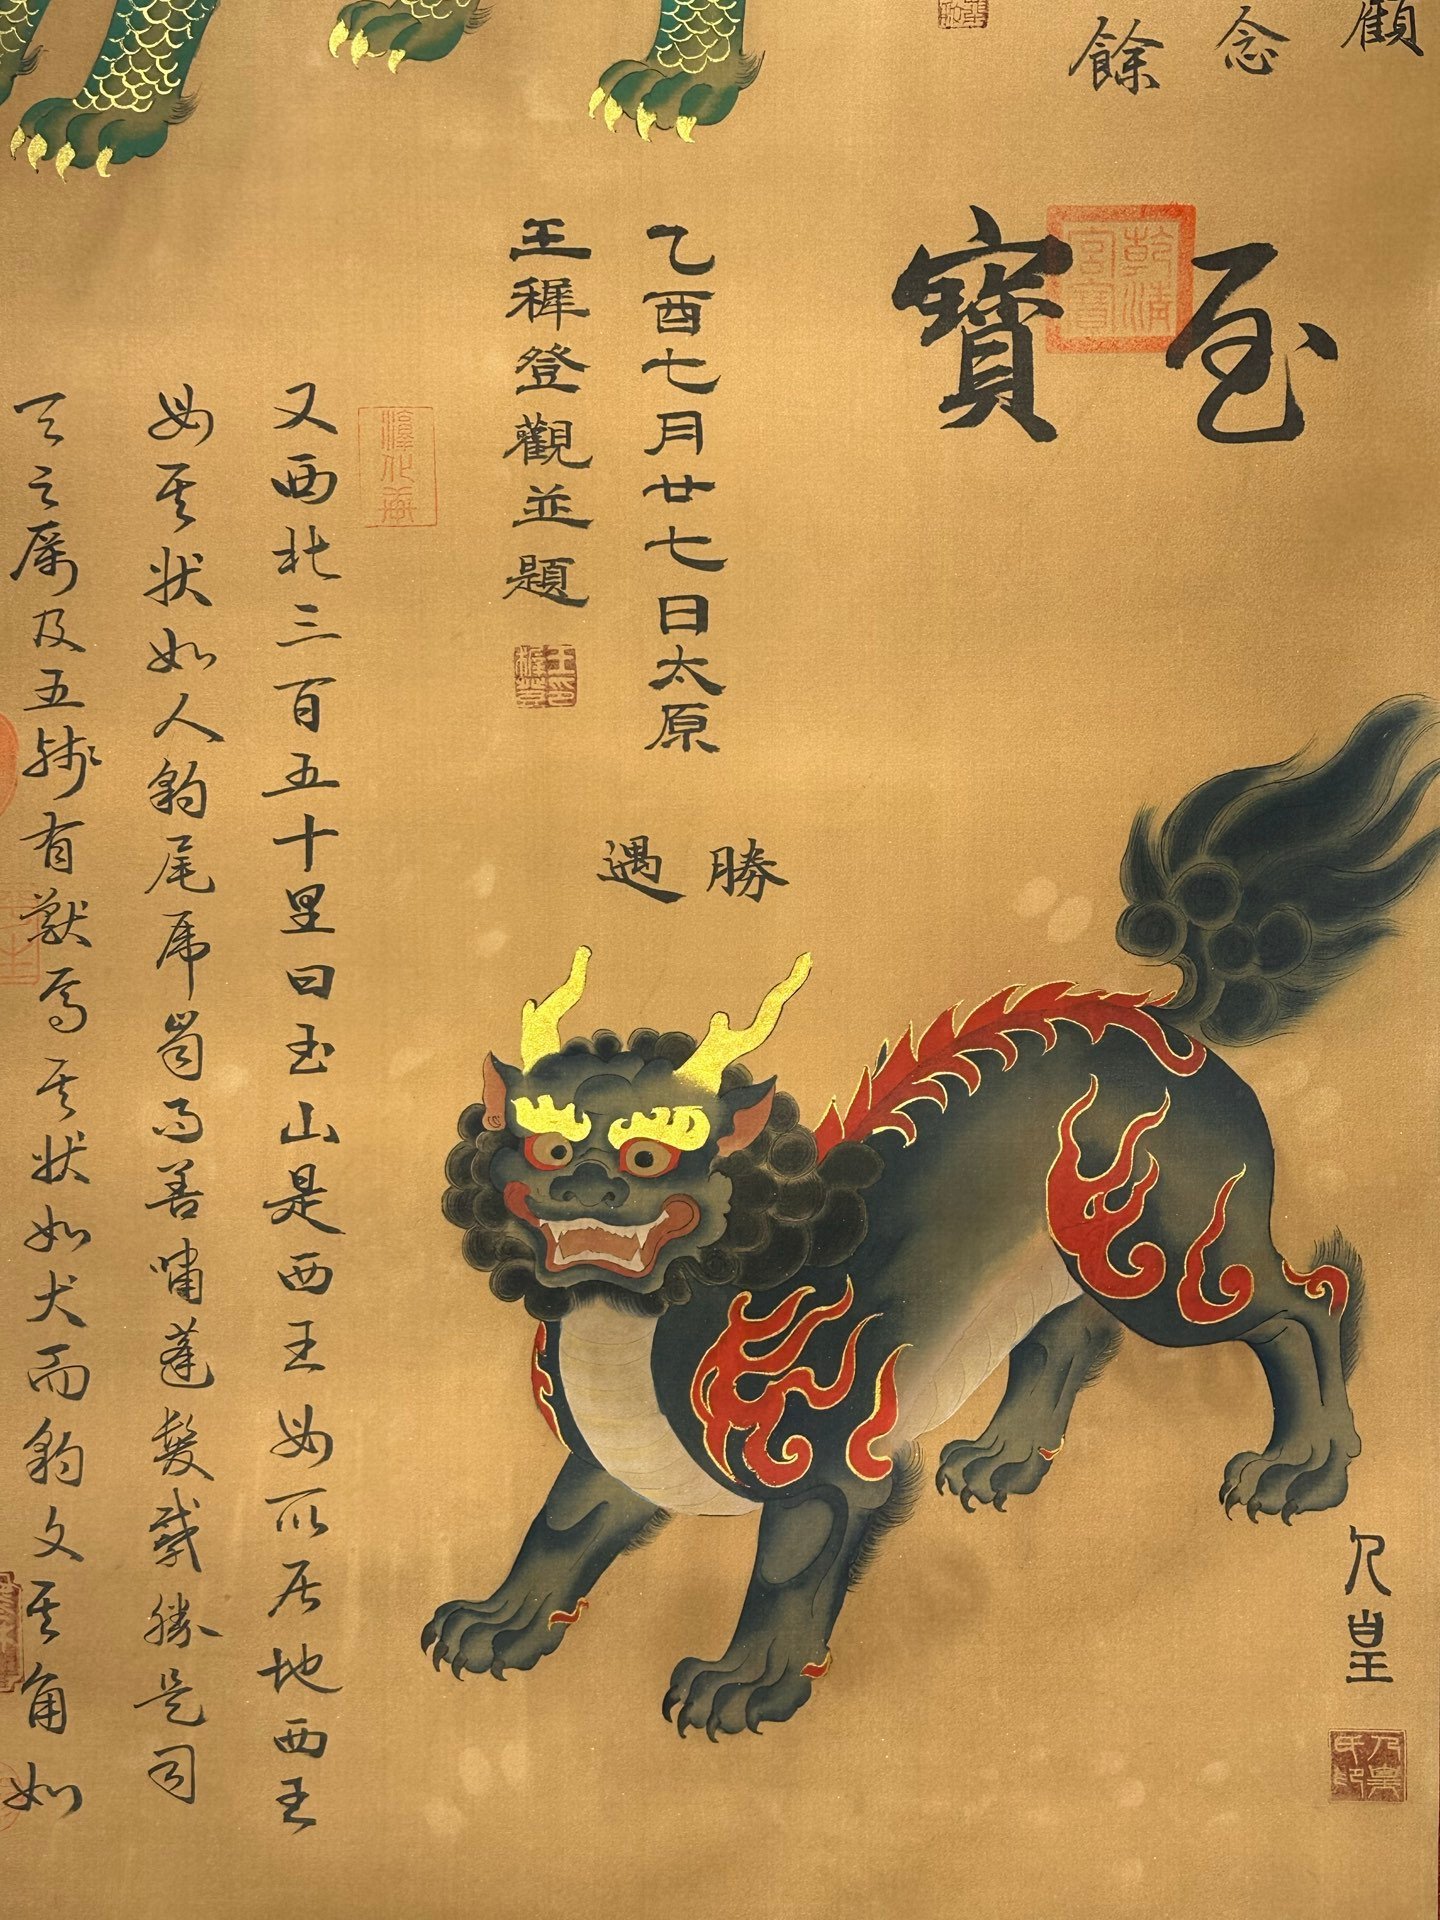 顧
念
餘
至寶
乾清宮寶
乙酉七月廿七日太原
王穉登觀並題
勝遇
淳化軒
又西北三百五十里曰玉山是西王母所居地西王
母其状如人豹尾虎齒而善嘯蓬髮戴勝是司
天之厲及五殘有獸焉其状如犬而豹文其角如
人皇